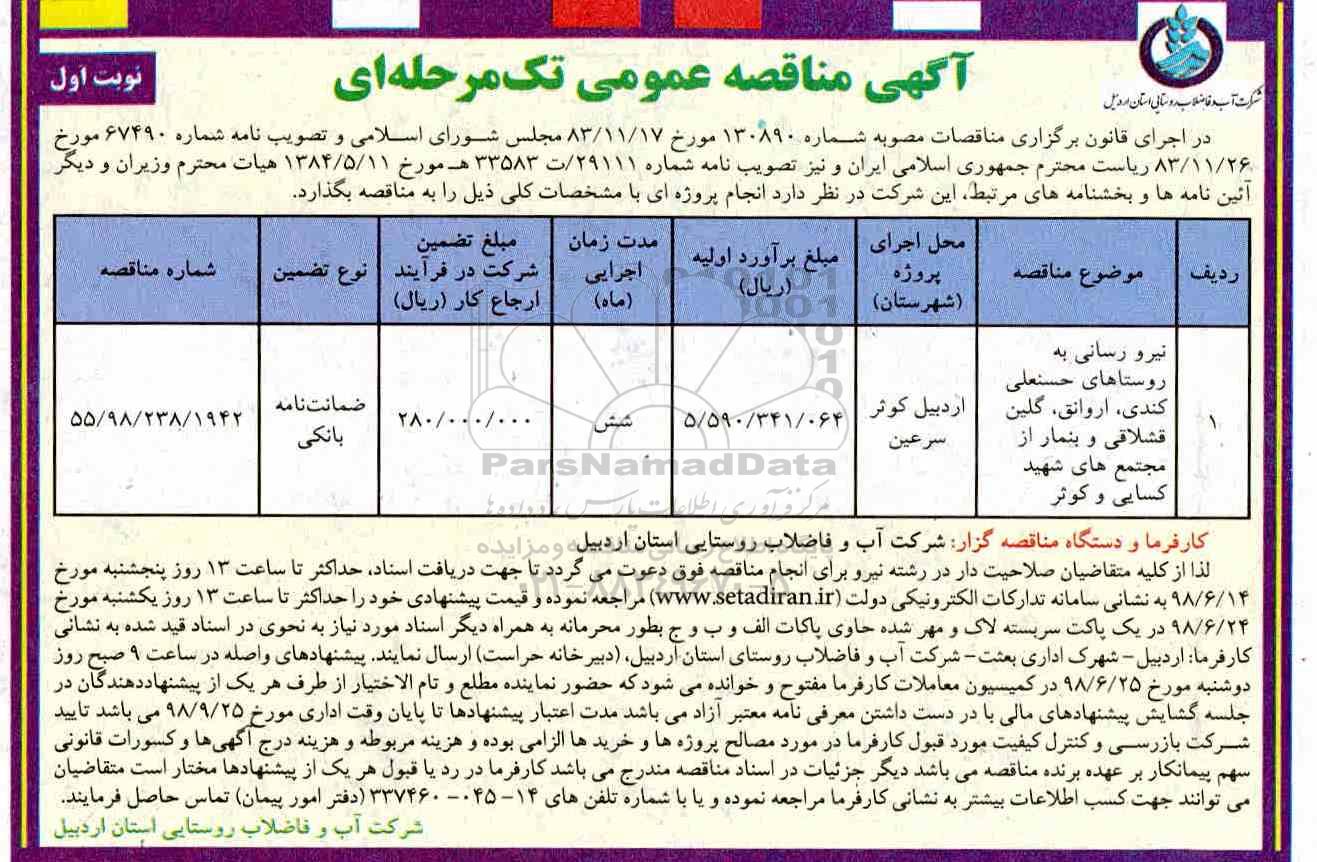 شرکت آب و فاضلاب روستایی استان اردبیل
آگهی مناقصه عمومی تک‌مرحله‌ای
نوبت اول
در اجرای قانون برگزاری مناقصات مصوبه شماره ۱۳۰۸۹۰ مورخ ۸۳/۱۱/۱۷ مجلس شورای اسلامی و تصویب نامه شماره ۶۷۴۹۰ مورخ
۸۳/۱۱/۲۶ ریاست محترم جمهوری اسلامی ایران و نیز تصویب نامه شماره ۲۹۱۱۱/ت ۳۳۵۸۳ هـ مورخ ۱۳۸۴/۵/۱۱ هیات محترم وزیران و دیگر
آئین نامه ها و بخشنامه های مرتبط، این شرکت در نظر دارد انجام پروژه ای با مشخصات کلی ذیل را به مناقصه بگذارد.
ردیف
موضوع مناقصه
محل اجرای
پروژه
(شهرستان)
مبلغ برآورد اولیه
(ریال)
مدت زمان
اجرایی
(ماه)
مبلغ تضمین
شرکت در فرآیند
ارجاع کار (ریال)
نوع تضمین
شماره مناقصه
۱
نیرو رسانی به
روستاهای حسنعلی
کندی، اروانق، گلین
قشلاقی و ینمار از
مجتمع های شهید
کسایی و کوثر
اردبیل کوثر
سرعین
۵/۵۹۰/۳۴۱/۰۶۴
شش
۲۸۰/۰۰۰/۰۰۰
ضمانت‌نامه
بانکی
۵۵/۹۸/۲۳۸/۱۹۴۲
ParsNamadData
مرکز فرآوری اطلاعات پارس نماد داده‌ها
کارفرما و دستگاه مناقصه گزار: شرکت آب و فاضلاب روستایی استان اردبیل
لذا از کلیه متقاضیان صلاحیت دار در رشته نیرو برای انجام مناقصه فوق دعوت می گردد تا جهت دریافت اسناد، حداکثر تا ساعت ۱۳ روز پنجشنبه مورخ
۹۸/۶/۱۴ به نشانی سامانه تدارکات الکترونیکی دولت (www.setadiran.ir) مراجعه نموده و قیمت پیشنهادی خود را حداکثر تا ساعت ۱۳ روز یکشنبه مورخ
۹۸/۶/۲۴ در یک پاکت سربسته لاک و مهر شده حاوی پاکات الف و ب و ج بطور محرمانه به همراه دیگر اسناد مورد نیاز به نحوی در اسناد قید شده به نشانی
کارفرما: اردبیل- شهرک اداری بعثت- شرکت آب و فاضلاب روستای استان اردبیل، (دبیرخانه حراست) ارسال نمایند. پیشنهادهای واصله در ساعت ۹ صبح روز
دوشنبه مورخ ۹۸/۶/۲۵ در کمیسیون معاملات کارفرما مفتوح و خوانده می شود که حضور نماینده مطلع و تام الاختیار از طرف هر یک از پیشنهاددهندگان در
جلسه گشایش پیشنهادهای مالی با در دست داشتن معرفی نامه معتبر آزاد می باشد مدت اعتبار پیشنهادها تا پایان وقت اداری مورخ ۹۸/۹/۲۵ می باشد تایید
شرکت بازرسی و کنترل کیفیت مورد قبول کارفرما در مورد مصالح پروژه ها و خرید ها الزامی بوده و هزینه مربوطه و هزینه درج آگهی‌ها و کسورات قانونی
سهم پیمانکار بر عهده برنده مناقصه می باشد دیگر جزئیات در اسناد مناقصه مندرج می باشد کارفرما در رد یا قبول هر یک از پیشنهادها مختار است متقاضیان
می توانند جهت کسب اطلاعات بیشتر به نشانی کارفرما مراجعه نموده و یا با شماره تلفن های ۱۴- ۰۴۵- ۳۳۷۴۶۰ (دفتر امور پیمان) تماس حاصل فرمایند.
شرکت آب و فاضلاب روستایی استان اردبیل